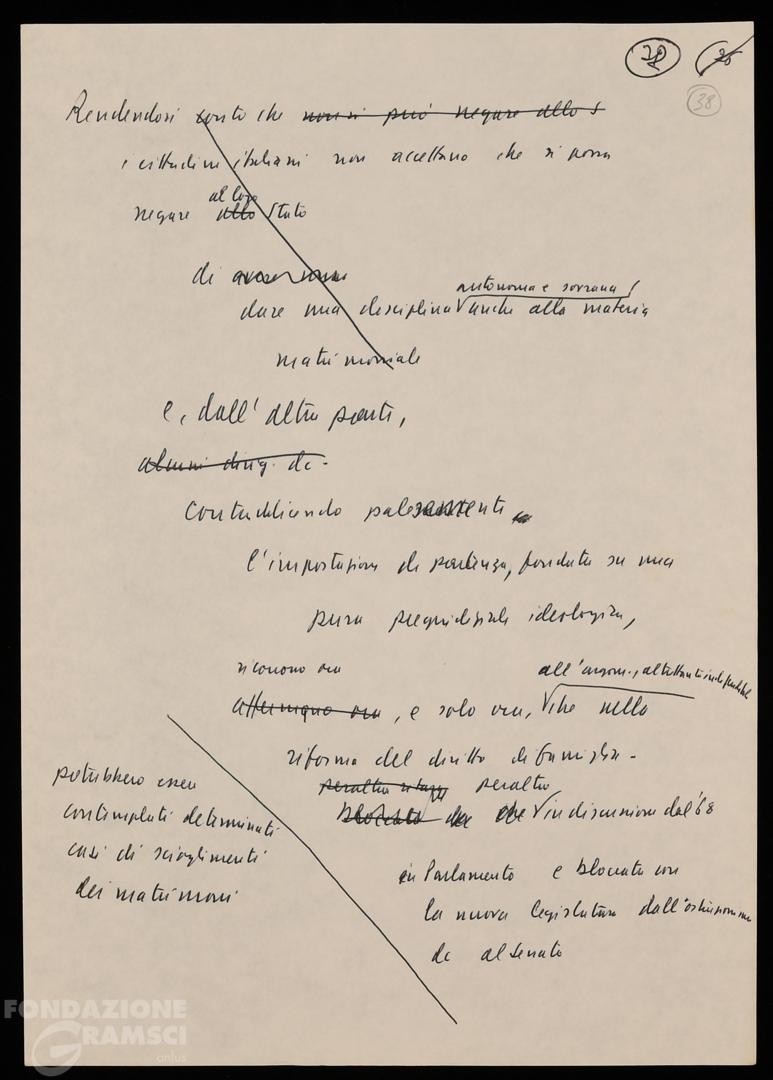 38
38
Rendendosi conto che non si può negare allo S
i cittadini italiani non accettano che si possa
al loro
negare allo Stato
di
autonoma e sovrana
dare una disciplina anche alla materia
matrimoniale
e, dall'altra parte,
alcuni dirig. dc.
Contraddicendo palesemente
l'impostazione di partenza, fondata su una
pura pregiudiziale ideologica,
ricorrono ora
all'argom., altrettanto
affermano ora, e solo ora, che nella
riforma del diritto di famiglia -
peraltro
bloccata che in discussione dal '68
in Parlamento e bloccata con
la nuova legislatura dall'ostruzionismo
dc al Senato
potrebbero essere
contemplati determinati
casi di scioglimenti
dei matrimoni
FONDAZIONE
GRAMSCI
onlus